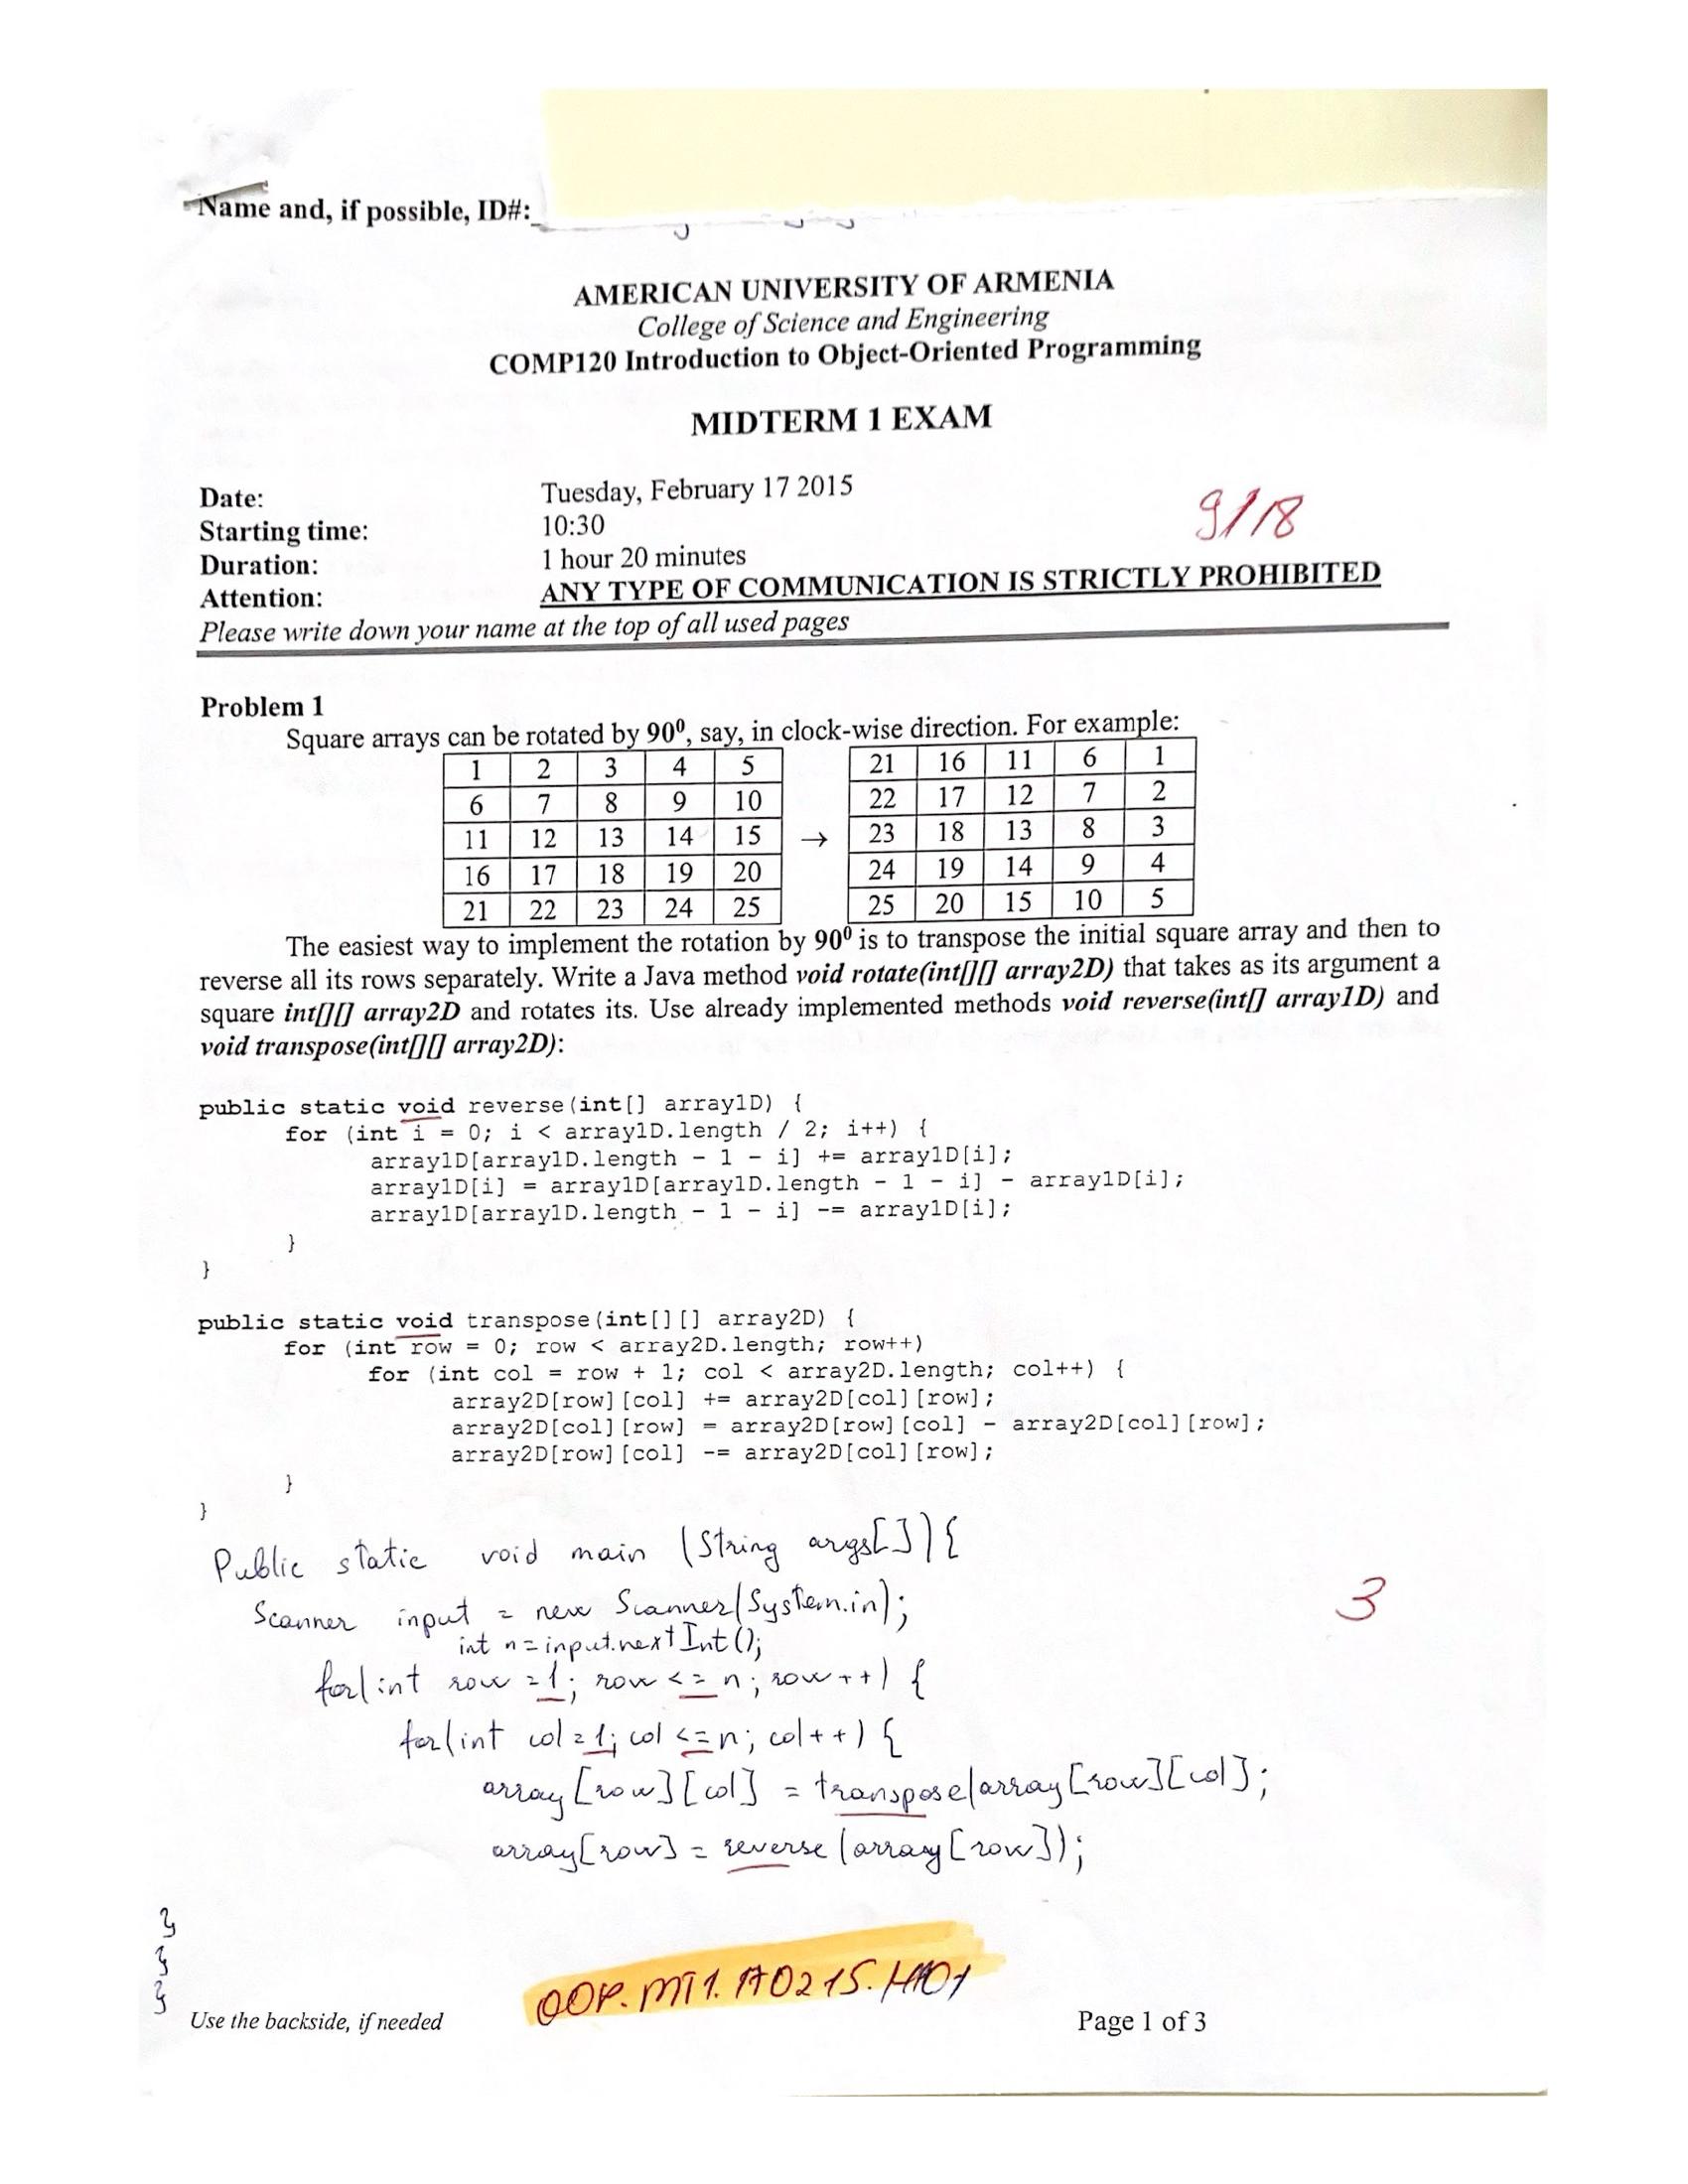 Name and, if possible, ID#:
AMERICAN UNIVERSITY OF ARMENIA
College of Science and Engineering
COMP120 Introduction to Object-Oriented Programming
MIDTERM 1 EXAM
Date: Tuesday, February 17 2015
9/18
Starting time: 10:30
Duration: 1 hour 20 minutes
Attention: ANY TYPE OF COMMUNICATION IS STRICTLY PROHIBITED
Please write down your name at the top of all used pages
Problem 1
Square arrays can be rotated by 90⁰, say, in clock-wise direction. For example:
1 2 3 4 5 21 16 11 6 1
6 7 8 9 10 22 17 12 7 2
11 12 13 14 15 → 23 18 13 8 3
16 17 18 19 20 24 19 14 9 4
21 22 23 24 25 25 20 15 10 5
The easiest way to implement the rotation by 90⁰ is to transpose the initial square array and then to
reverse all its rows separately. Write a Java method void rotate(int[][] array2D) that takes as its argument a
square int[][] array2D and rotates its. Use already implemented methods void reverse(int[] array1D) and
void transpose(int[][] array2D):
public static void reverse(int[] array1D) {
for (int i = 0; i < array1D.length / 2; i++) {
array1D[array1D.length - 1 - i] += array1D[i];
array1D[i] = array1D[array1D.length - 1 - i] - array1D[i];
array1D[array1D.length - 1 - i] -= array1D[i];
}
}
public static void transpose(int[][] array2D) {
for (int row = 0; row < array2D.length; row++)
for (int col = row + 1; col < array2D.length; col++) {
array2D[row][col] += array2D[col][row];
array2D[col][row] = array2D[row][col] - array2D[col][row];
array2D[row][col] -= array2D[col][row];
}
}
Public static void main (String args[]){
Scanner input = new Scanner(System.in);
3
int n=input.nextInt();
for(int row =1; row <= n; row++) {
for(int col=1; col <=n; col++) {
array[row][col] = transpose(array[row][col];
array[row] = reverse (array[row]);
}
}
}
OOP.MT1.170215.H101
Use the backside, if needed Page 1 of 3